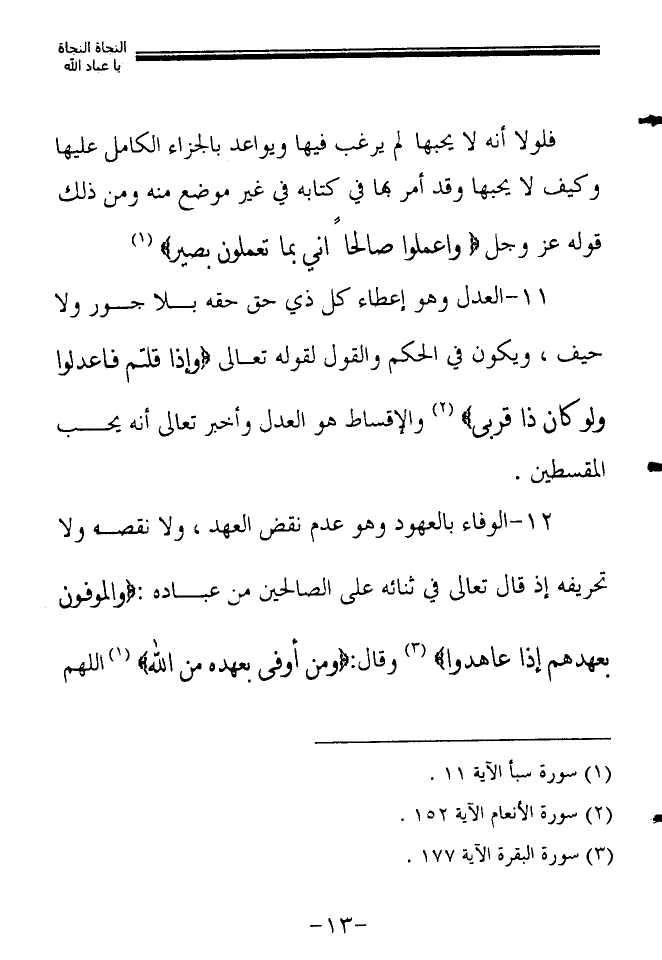 النجاة النجاة
يا عباد الله
فلولا أنه لا يحبها لم يرغب فيها ويواعد بالجزاء الكامل عليها
وكيف لا يحبها وقد أمر بها في كتابه في غير موضع منه ومن ذلك
قوله عز وجل ﴿ واعملوا صالحاً اني بما تعملون بصير﴾ (١)
١١-العدل وهو إعطاء كل ذي حق حقه بـلا جـور ولا
حيف ، ويكون في الحكم والقول لقوله تعـالى ﴿وإذا قلتم فاعدلوا
ولو كان ذا قربى﴾ (٢) والإقساط هو العدل وأخبر تعالى أنه يحـــب
المقسطين .
١٢-الوفاء بالعهود وهو عدم نقض العهد ، ولا نقصـه ولا
تحريفه إذ قال تعالى في ثنائه على الصالحين من عبـاده :﴿والموفون
بعهدهم إذا عاهدوا﴾ (٣) وقال:﴿ومن أوفى بعهده من الله﴾ (١) اللهم
(١) سورة سبأ الآية ١١ .
(٢) سورة الأنعام الآية ١٥٢ .
(٣) سورة البقرة الآية ١٧٧ .
-١٣-